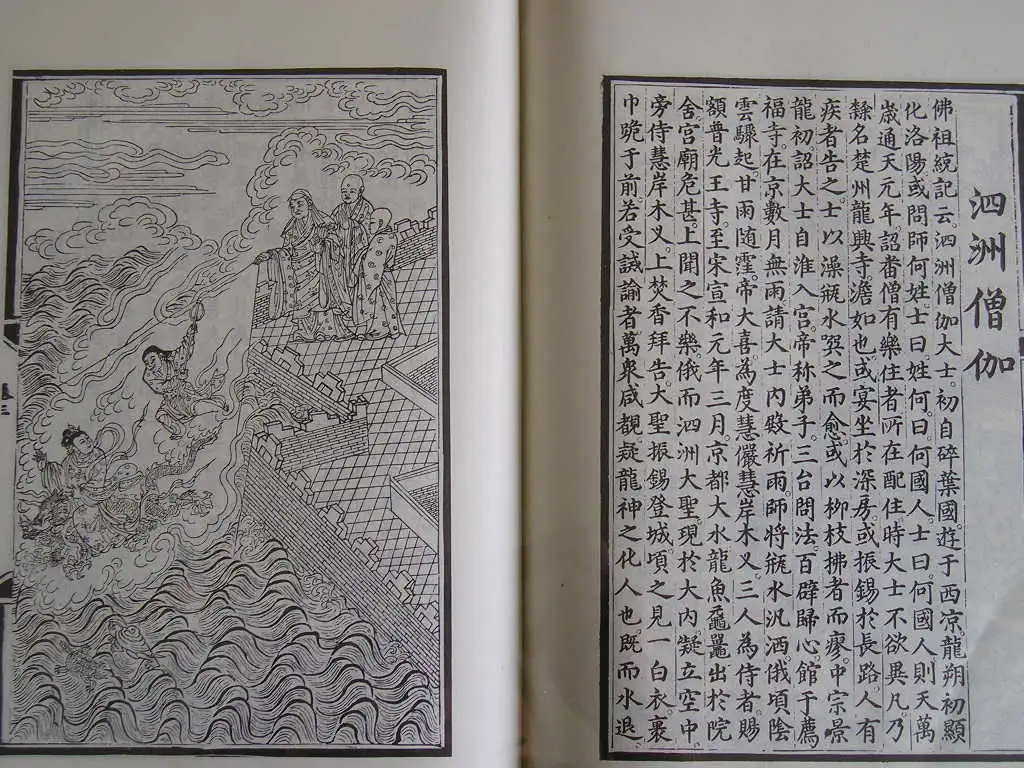 泗洲僧伽
佛祖綂記云。泗洲僧伽大士。初自碎葉國遊于西凉。龍朔初顯
化洛陽或問師何姓士曰。姓何。曰何國人士曰。何國人則天萬
嵗通天元年。詔畨僧有樂住者所在配住時大士不欲異凡。乃
隸名楚州龍興寺。澹如也或宴坐於深房。或振錫於長路人有
疾者告之。士以澡瓶水噀之而愈或以柳枝拂者而瘳。中宗景
龍初。詔大士自淮入宫。帝称弟子。三台問法。百辟歸心館于薦
福寺。在京數月無雨請大士内殿祈雨。師將瓶水汎洒。俄頃陰
雲驟起。甘雨随霔。帝大喜。為度慧儼慧岸木叉。三人為侍者賜
額普光王寺至宋宣和元年三月。京都大水龍魚黿鼉出於院
舍宫廟危甚上聞之不樂俄而泗洲大聖。現於大内。凝立空中。
旁侍慧岸木叉。上焚香拜告。大聖振錫登城頃之見一白衣裹
巾跪于前。若受誡諭者萬衆咸覩。疑龍神之化人也既而水退。